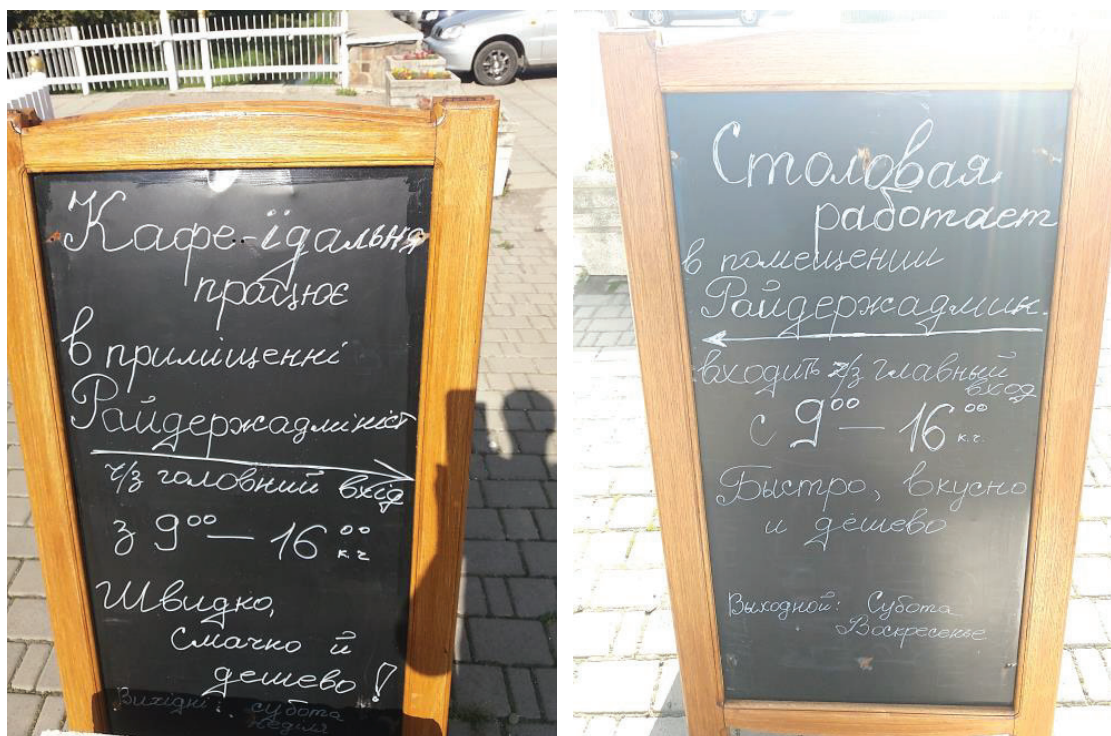 Кафе-їдальня
працює
в приміщенні
Райдержадмініст
ч/з головний вхід
з 9⁰⁰ — 16⁰⁰ к.ч.
Швидко,
смачно й
дешево!
Вихідні: субота
неділя
Столовая
работает
в помещении
Райдержадмин.
входить ч/з главный
вход
с 9⁰⁰ — 16⁰⁰ к.ч.
Быстро, вкусно
и дёшево
Выходной: Субота
Воскресенье